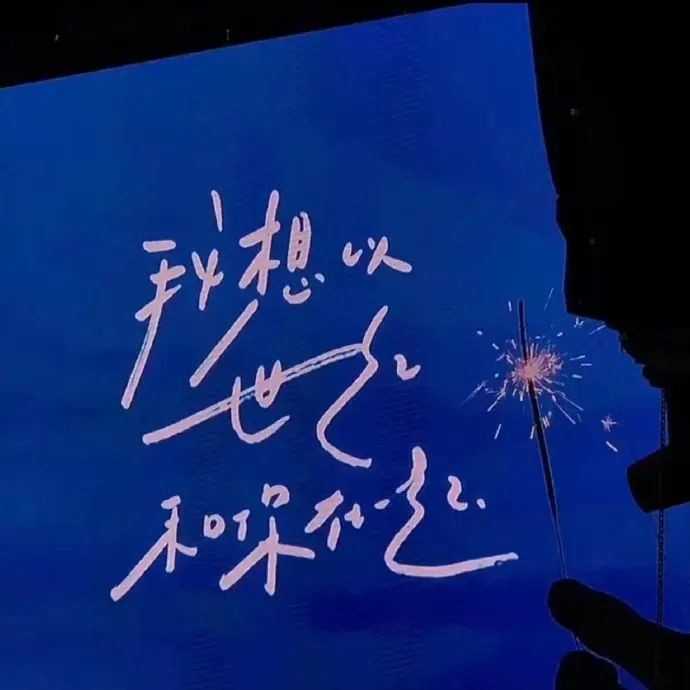 我想以
世纪
和你在一起